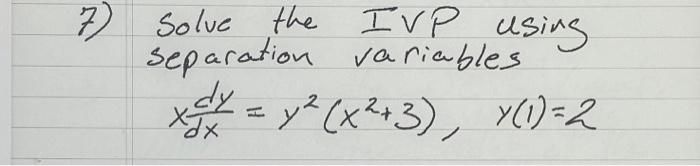 7) Solve the IVP using
separation variables
x dy/dx = y²(x²+3), y(1)=2